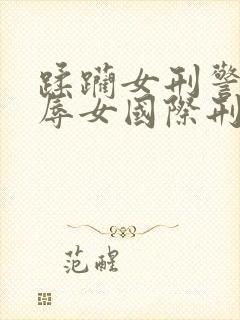 蹂躪女刑警
辱女國際刑
范醒